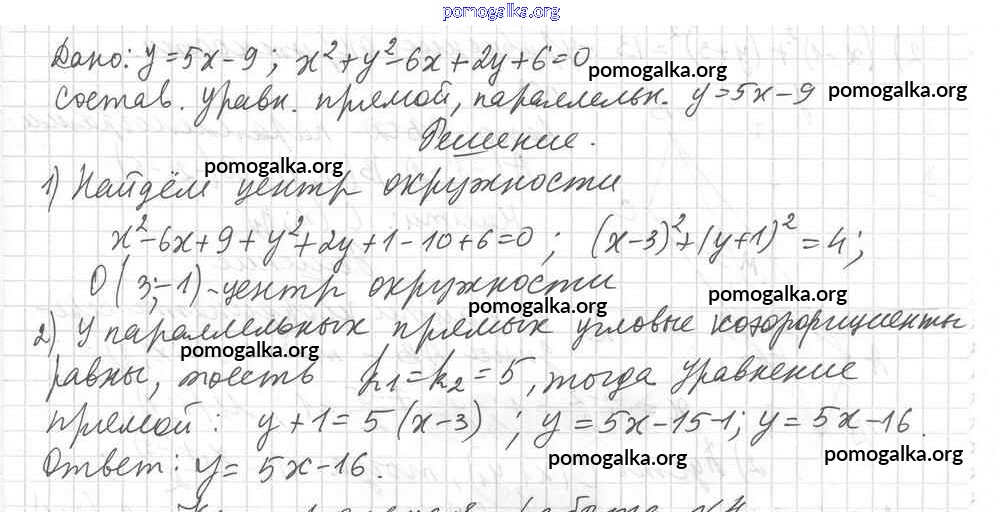 pomogalka.org
Дано: y=5x-9; x²+y²-6x+2y+6=0
pomogalka.org
состав. уравн. прямой, параллельн. y=5x-9 pomogalka.org
Решение.
pomogalka.org
1) Найдём центр окружности
x²-6x+9+y²+2y+1-10+6=0; (x-3)²+(y+1)²=4;
O(3;-1)-центр окружности
pomogalka.org pomogalka.org
2) У параллельных прямых угловые коэффициенты
pomogalka.org
равны, тоесть k₁=k₂=5, тогда уравнение
прямой: y+1=5(x-3); y=5x-15-1; y=5x-16.
Ответ: y=5x-16.
pomogalka.org pomogalka.org